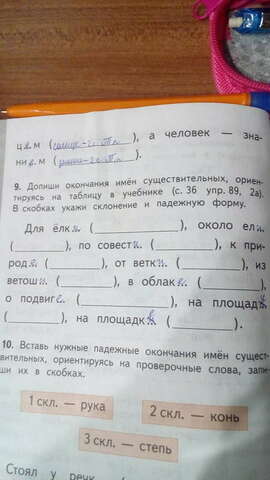 цем (, а человек — зна-
нием ().
9. Допиши окончания имён существительных, ориен-
тируясь на таблицу в учебнике (с. 36 упр. 89, 2а).
В скобках укажи склонение и падежную форму.
Для ёлки (), около ели
(), по совести (), к при-
роде (), от ветки (), из
ветоши (), в облаке (),
о подвиге (), на площади
(), на площадке ().
10. Вставь нужные падежные окончания имён сущест-
вительных, ориентируясь на проверочные слова, запи-
ши их в скобках.
1 скл. — рука 2 скл. — конь
3 скл. — степь
Стоял у речк